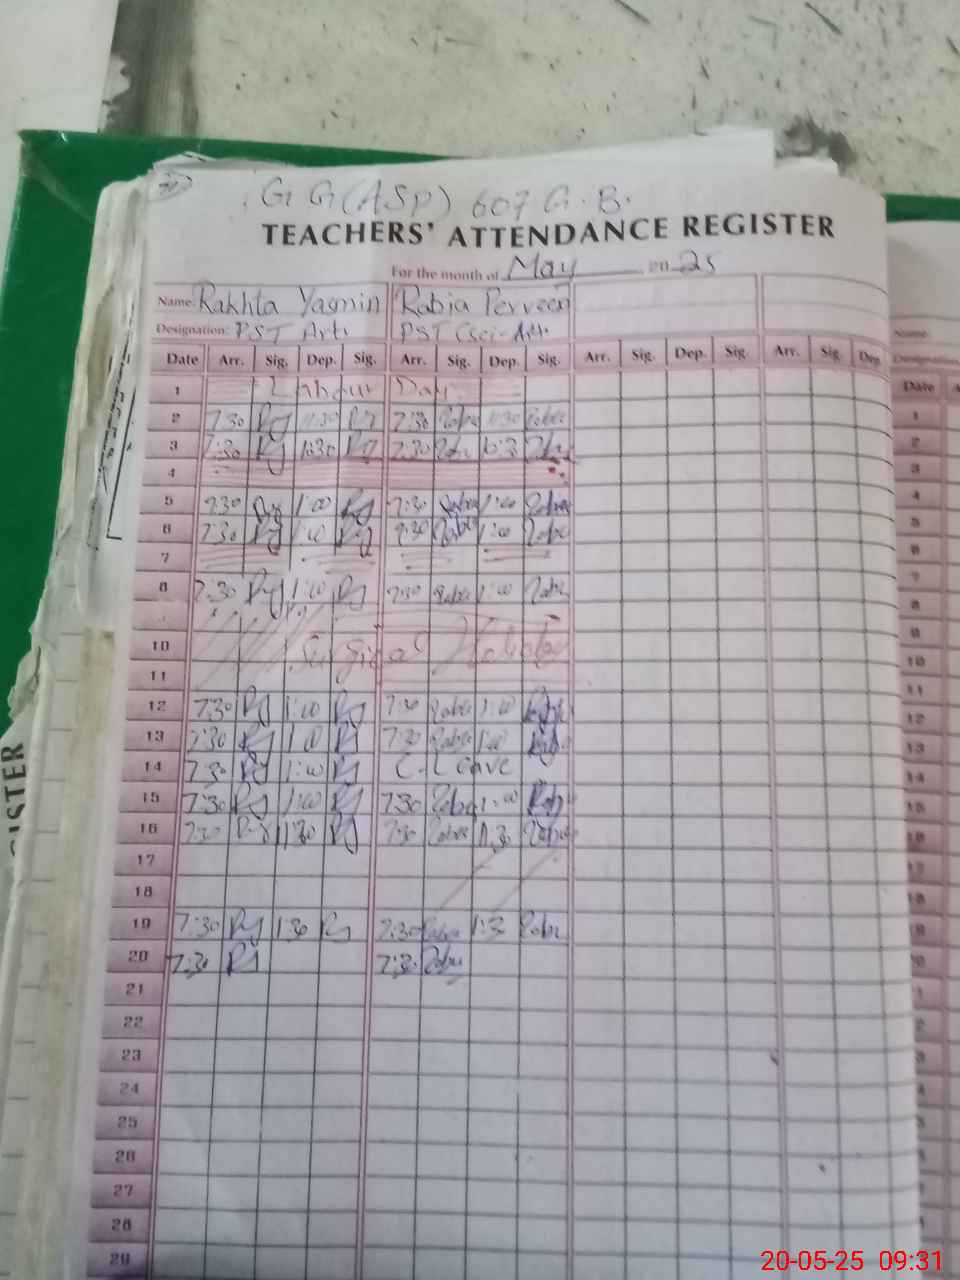 G G (ASP) 607 G.B.
TEACHERS' ATTENDANCE REGISTER
For the month of May 2025
Name: Rakhta Yasmin Rabia Perveen
Designation: PST Arts PST (Sci-Art
Date Arr. Sig. Dep. Sig. Arr. Sig. Dep. Sig. Arr. Sig. Dep. Sig Arr. Sig. Dep.
1 Labour Day
2 7:30 Ry 11:30 Ry 7:30 Rabia 11:30 Rabia
3 7:30 Ry 1:30 Ry 7:30 Rabia Rabia
4
5 7:30 Ry 1:00 Ry 7:30 Rabia 1:00 Rabia
6 7:30 Ry 1:00 Ry 7:30 Rabia 1:00 Rabia
7
8 7:30 Ry 1:00 Ry 7:30 Rabia 1:00 Rabia
10 Surgical
11
12 7:30 Ry 1:00 Ry 7:30 Rabia 1:00
13 7:30 Ry 1:00 Ry 7:30 Rabia 1:00
14 7:30 Ry 1:00 Ry C-Leave
15 7:30 Ry 1:00 Ry 7:30 Rabia 1:00 Rabia
16 7:30 Ry 1:30 Ry 7:30 Rabia 1:30 Rabia
17
18
19 7:30 Ry 1:30 Ry 7:30 Rabia 1:30 Rabia
20 7:30 Ry 7:30 Rabia
21
22
23
24
25
26
27
28
29
ISTER
20-05-25 09:31